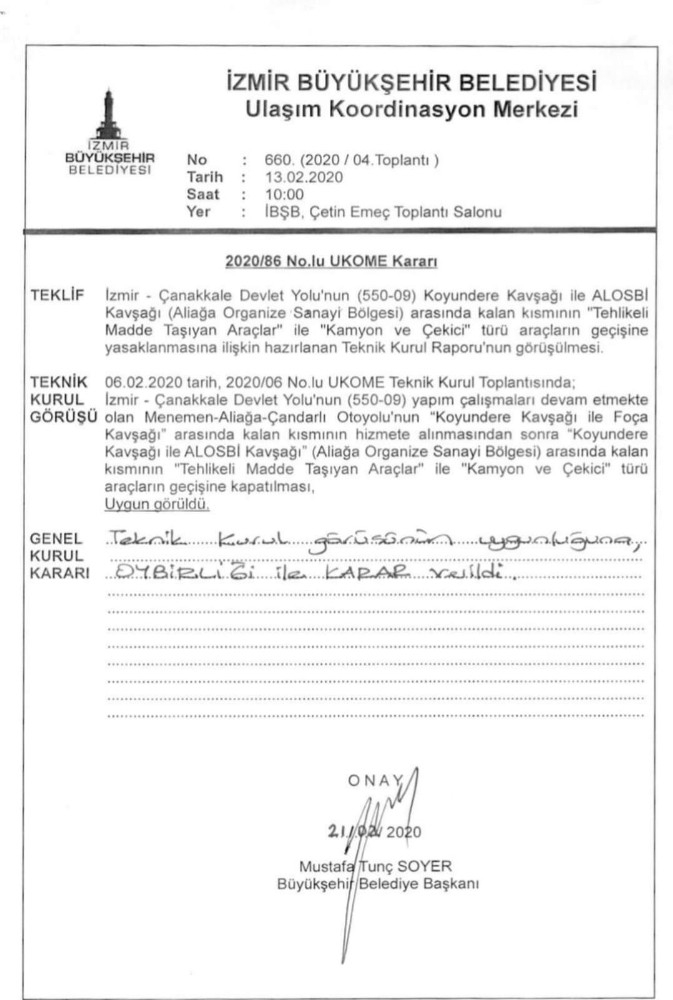 İZMİR
BÜYÜKŞEHİR
BELEDİYESİ
İZMİR BÜYÜKŞEHİR BELEDİYESİ
Ulaşım Koordinasyon Merkezi
No : 660. (2020 / 04.Toplantı )
Tarih : 13.02.2020
Saat : 10:00
Yer : İBŞB, Çetin Emeç Toplantı Salonu
2020/86 No.lu UKOME Kararı
TEKLİF İzmir - Çanakkale Devlet Yolu'nun (550-09) Koyundere Kavşağı ile ALOSBİ
Kavşağı (Aliağa Organize Sanayi Bölgesi) arasında kalan kısmının "Tehlikeli
Madde Taşıyan Araçlar" ile "Kamyon ve Çekici" türü araçların geçişine
yasaklanmasına ilişkin hazırlanan Teknik Kurul Raporu'nun görüşülmesi.
TEKNİK 06.02.2020 tarih, 2020/06 No.lu UKOME Teknik Kurul Toplantısında;
KURUL İzmir - Çanakkale Devlet Yolu'nun (550-09) yapım çalışmaları devam etmekte
GÖRÜŞÜ olan Menemen-Aliağa-Çandarlı Otoyolu'nun "Koyundere Kavşağı ile Foça
Kavşağı" arasında kalan kısmının hizmete alınmasından sonra "Koyundere
Kavşağı ile ALOSBİ Kavşağı" (Aliağa Organize Sanayi Bölgesi) arasında kalan
kısmının "Tehlikeli Madde Taşıyan Araçlar" ile "Kamyon ve Çekici" türü
araçların geçişine kapatılması,
Uygun görüldü.
GENEL Teknik Kurul görüşünün uygunluğuna,
KURUL
KARARI OYBİRLİĞİ ile KARAR verildi.
ONAY
21/02/2020
Mustafa Tunç SOYER
Büyükşehir Belediye Başkanı